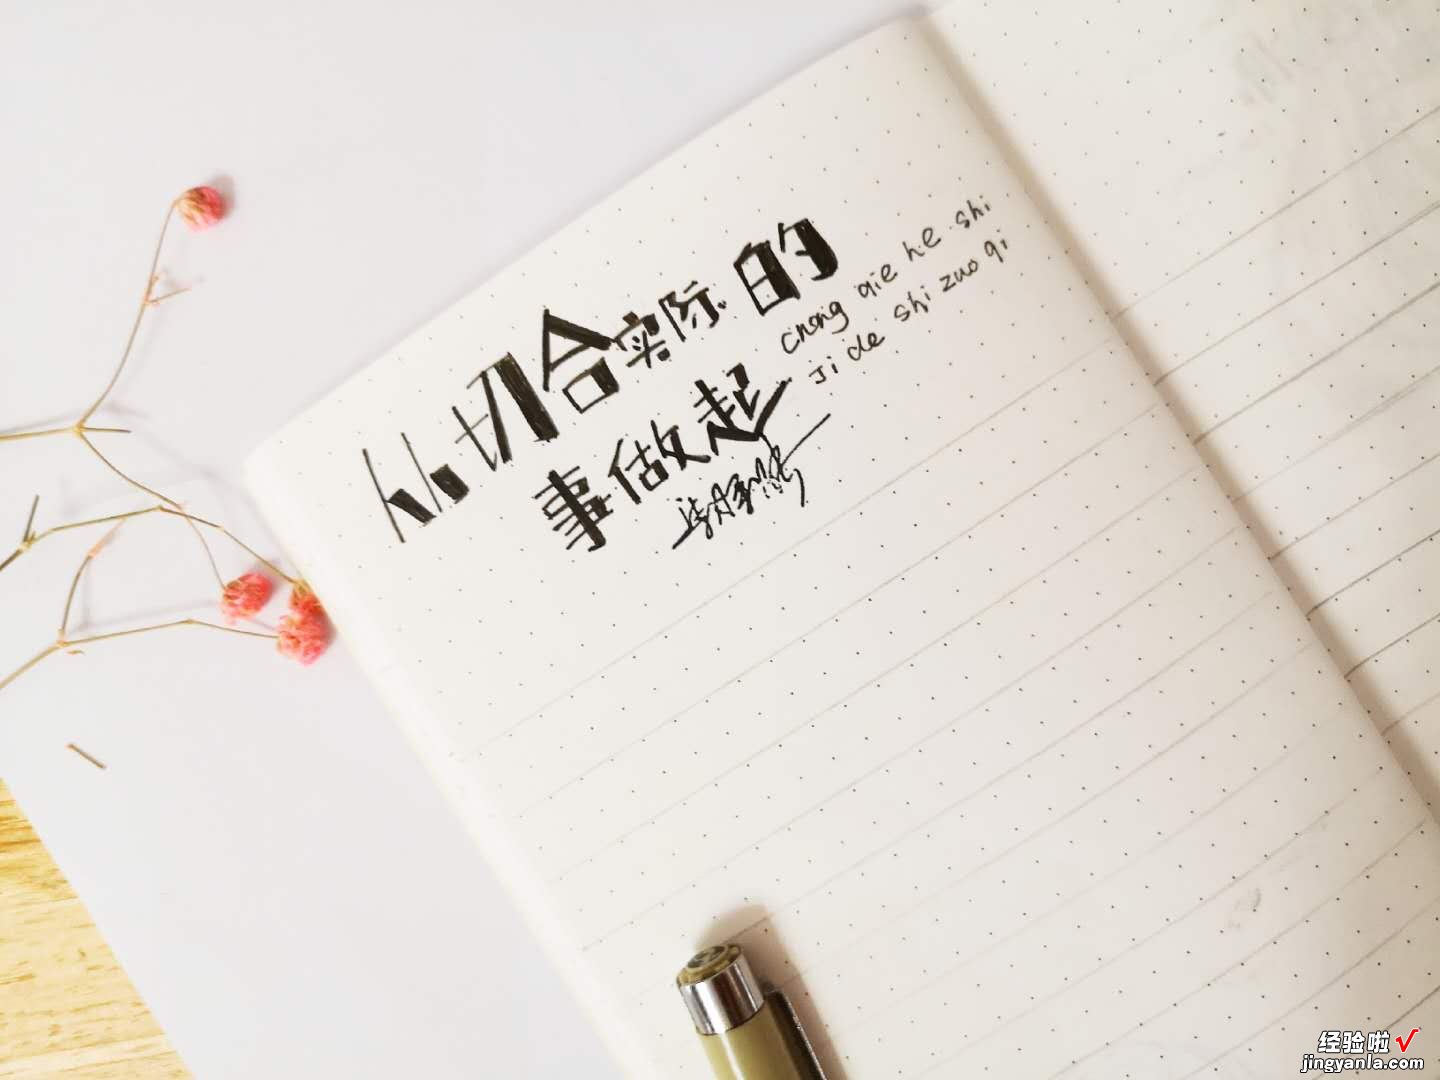 从切合实际的
事做起
chong qie he shi
ji de shi zuo qi
经验啦
jingyanla.com